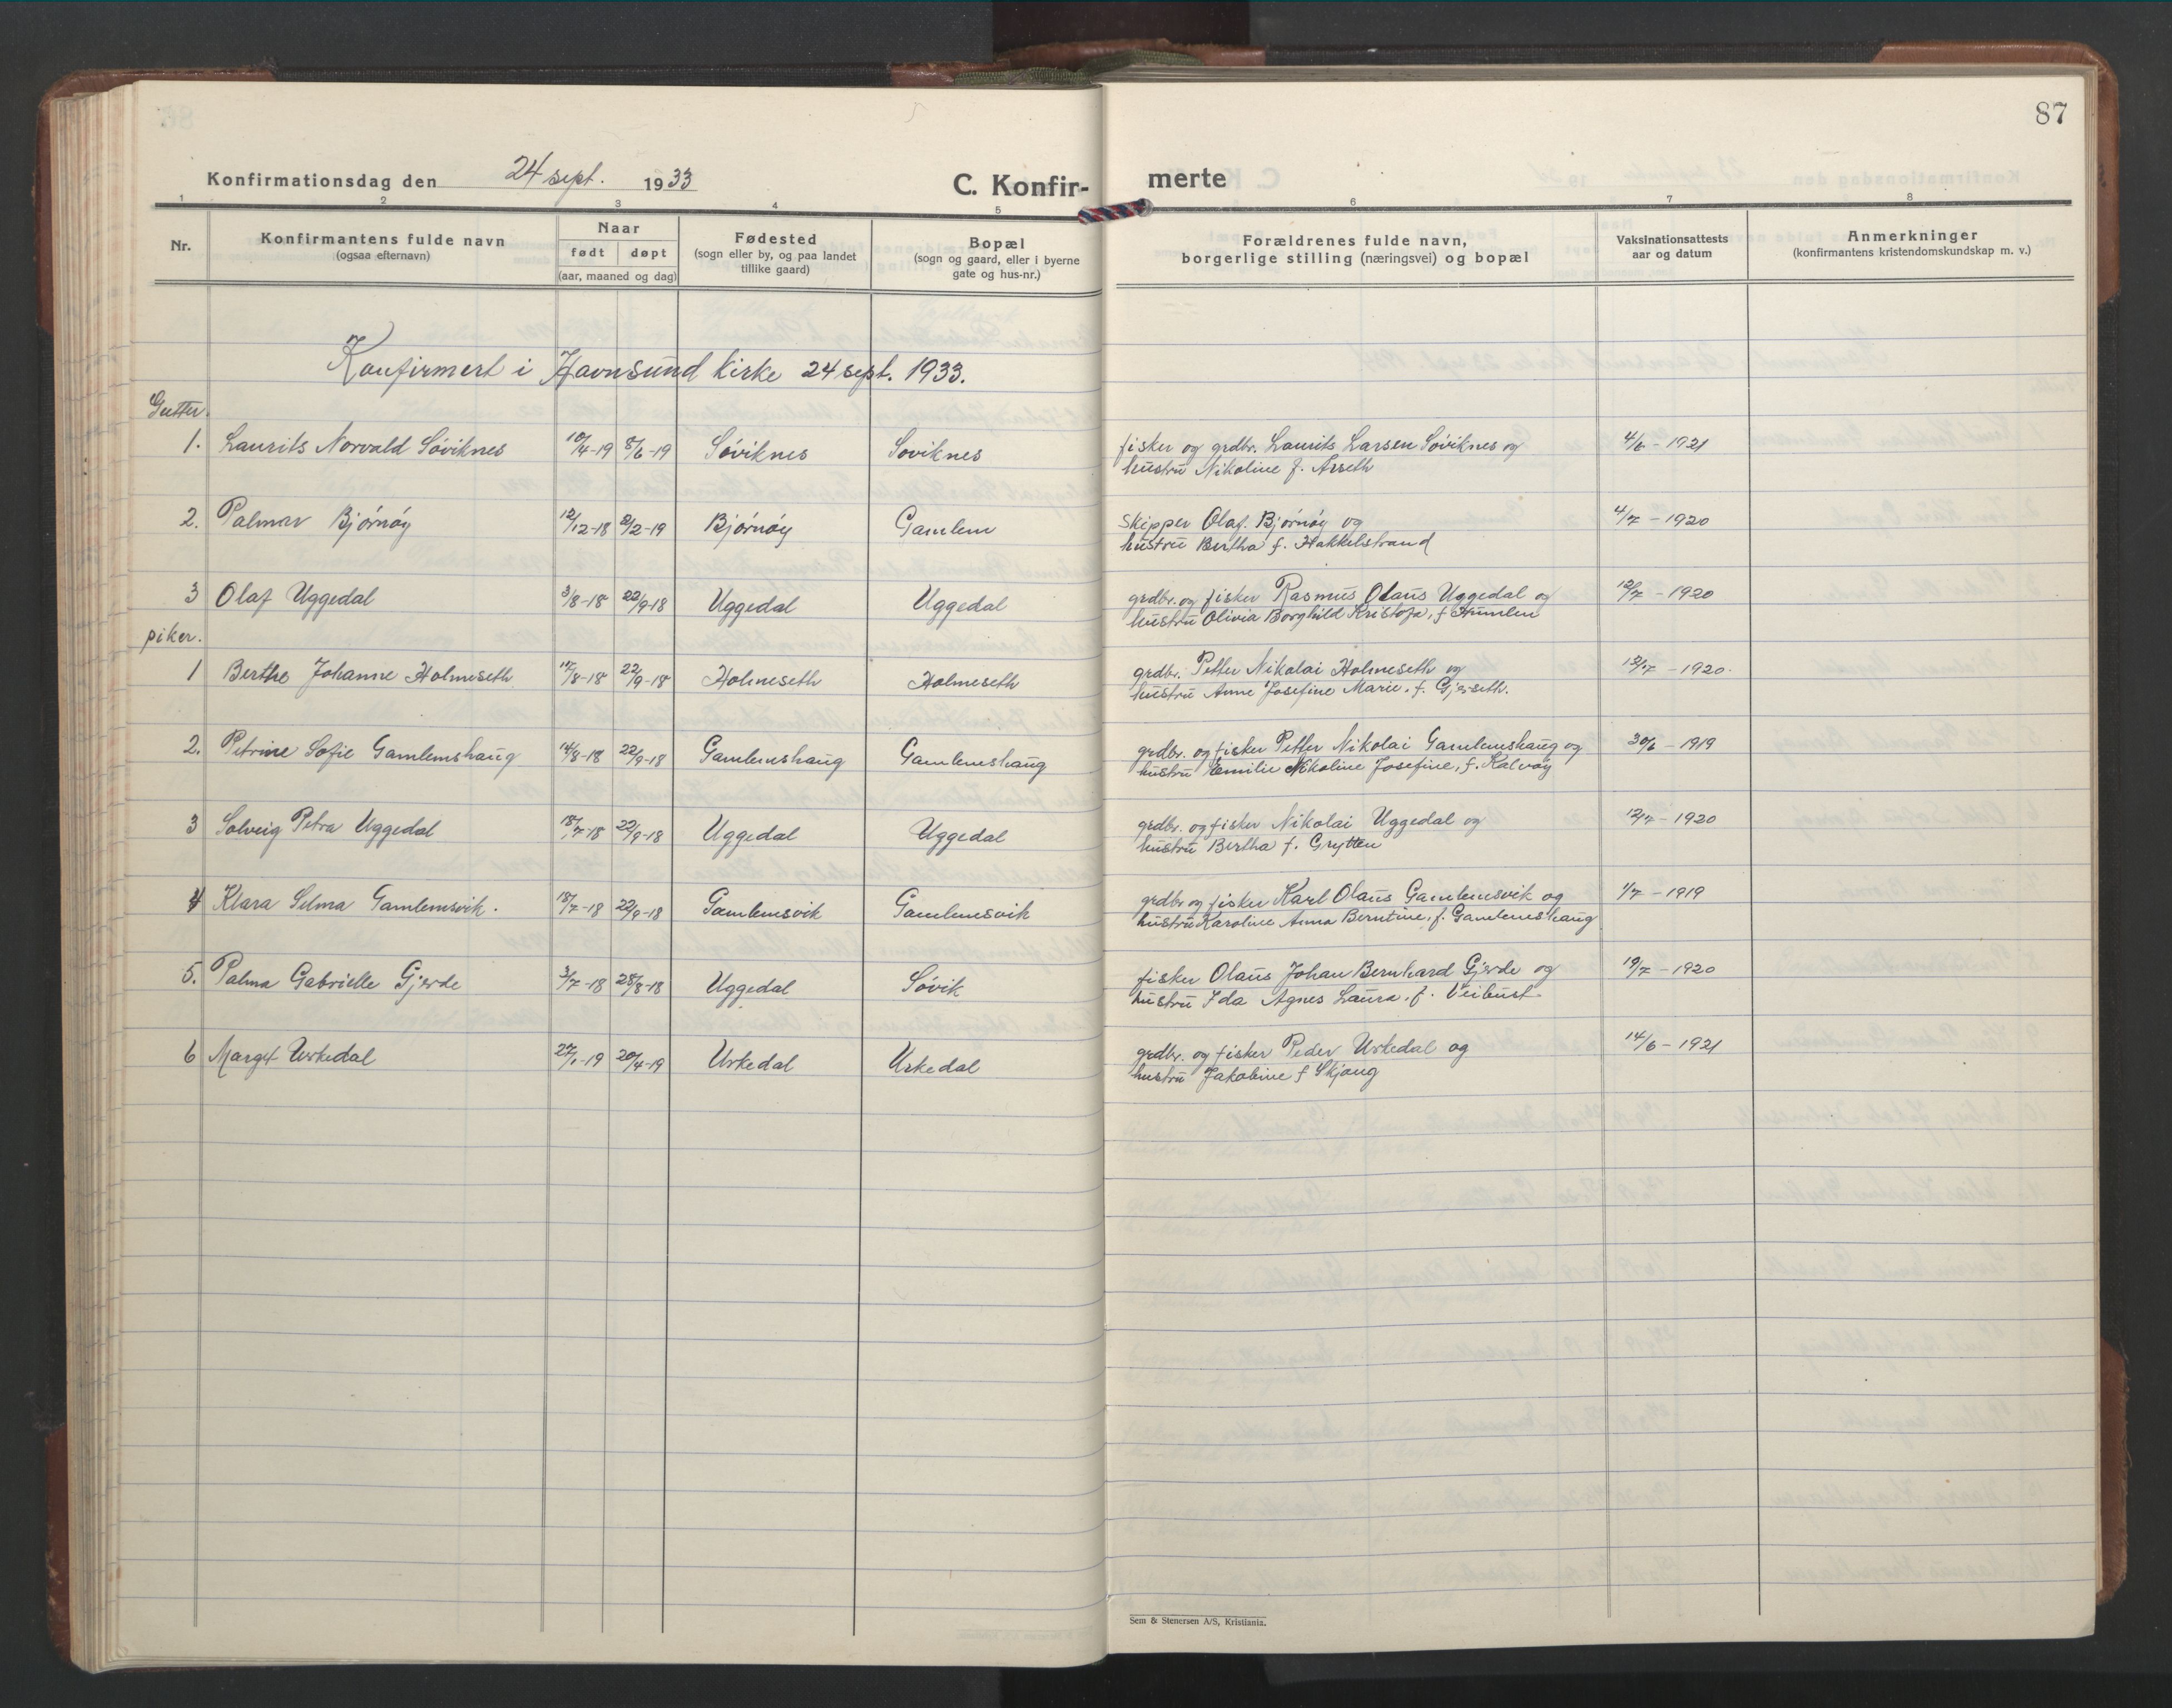 87
Konfirmationsdag den 24 sept. 1933
C. Konfir- merte
1 2 3 4 5 6 7 8
Nr. Konfirmantens fulde navn (ogsaa efternavn) Naar født døpt (aar, maaned og dag) Fødested (sogn eller by, og paa landet tillike gaard) Bopæl (sogn og gaard, eller i byerne gate og hus-nr.) Forældrenes fulde navn, borgerlige stilling (næringsvei) og bopæl Vaksinationsattests aar og datum Anmerkninger (konfirmantens kristendomskundskap m. v.)
Konfirmert i Havnsund kirke 24 sept. 1933.
Gutter.
1. Laurits Norvald Søviknes 10/4-19 8/6-19 Søviknes Søviknes fisker og grdbr. Laurits Larsen Søviknes og 4/6 - 1921
hustru Nikoline f. Arseth
2. Palmar Bjørnøy 12/12-18 2/2-19 Bjørnøy Gamlem Skipper Olaf Bjørnøy og 4/7 - 1920
hustru Bertha f. Hakkelstrand
3 Olaf Uggedal 3/8-18 22/9-18 Uggedal Uggedal grdbr. og fisker Rasmus Olaus Uggedal og 12/7 - 1920
hustru Olivia Borghild Kristofa, f Humlen
piker.
1 Berthe Johanne Holmeseth 17/8-18 22/9-18 Holmeseth Holmeseth grdbr. Petter Nikolai Holmeseth og 12/7 - 1920.
hustru Anne Josefine Marie, f. Gjerseth.
2. Petrine Sofie Gamlemshaug 14/8-18 22/9-18 Gamlemshaug Gamlemshaug grdbr. og fisker Petter Nikolai Gamlemshaug og 30/6 - 1919
hustru Emilie Nikoline Josefine, f. Kalvøy
3 Solveig Petra Uggedal 18/7-18 22/9-18 Uggedal Uggedal grdbr. og fisker Nikolai Uggedal og 12/7 - 1920
hustru Bertha f. Grytten
4 Klara Selma Gamlemsvik. 18/7-18 22/9-18 Gamlemsvik Gamlemsvik grdbr og fisker Karl Olaus Gamlemsvik og 1/7 - 1919
hustru Karoline Anna Berntine, f. Gamlemshaug
5. Palma Gabrielle Gjerde 3/7-18 28/8-18 Uggedal Søvik fisker Olaus Johan Bernhard Gjerde og 19/7 - 1920
hustru Ida Agnes Laura, f. Veibust.
6 Margit Urkedal 27/1-19 20/4-19 Urkedal Urkedal grdbr. og fisker Peder Urkedal og 14/6 - 1921
hustru Jakobine f Skjong
Sem & Stenersen A/S, Kristiania.